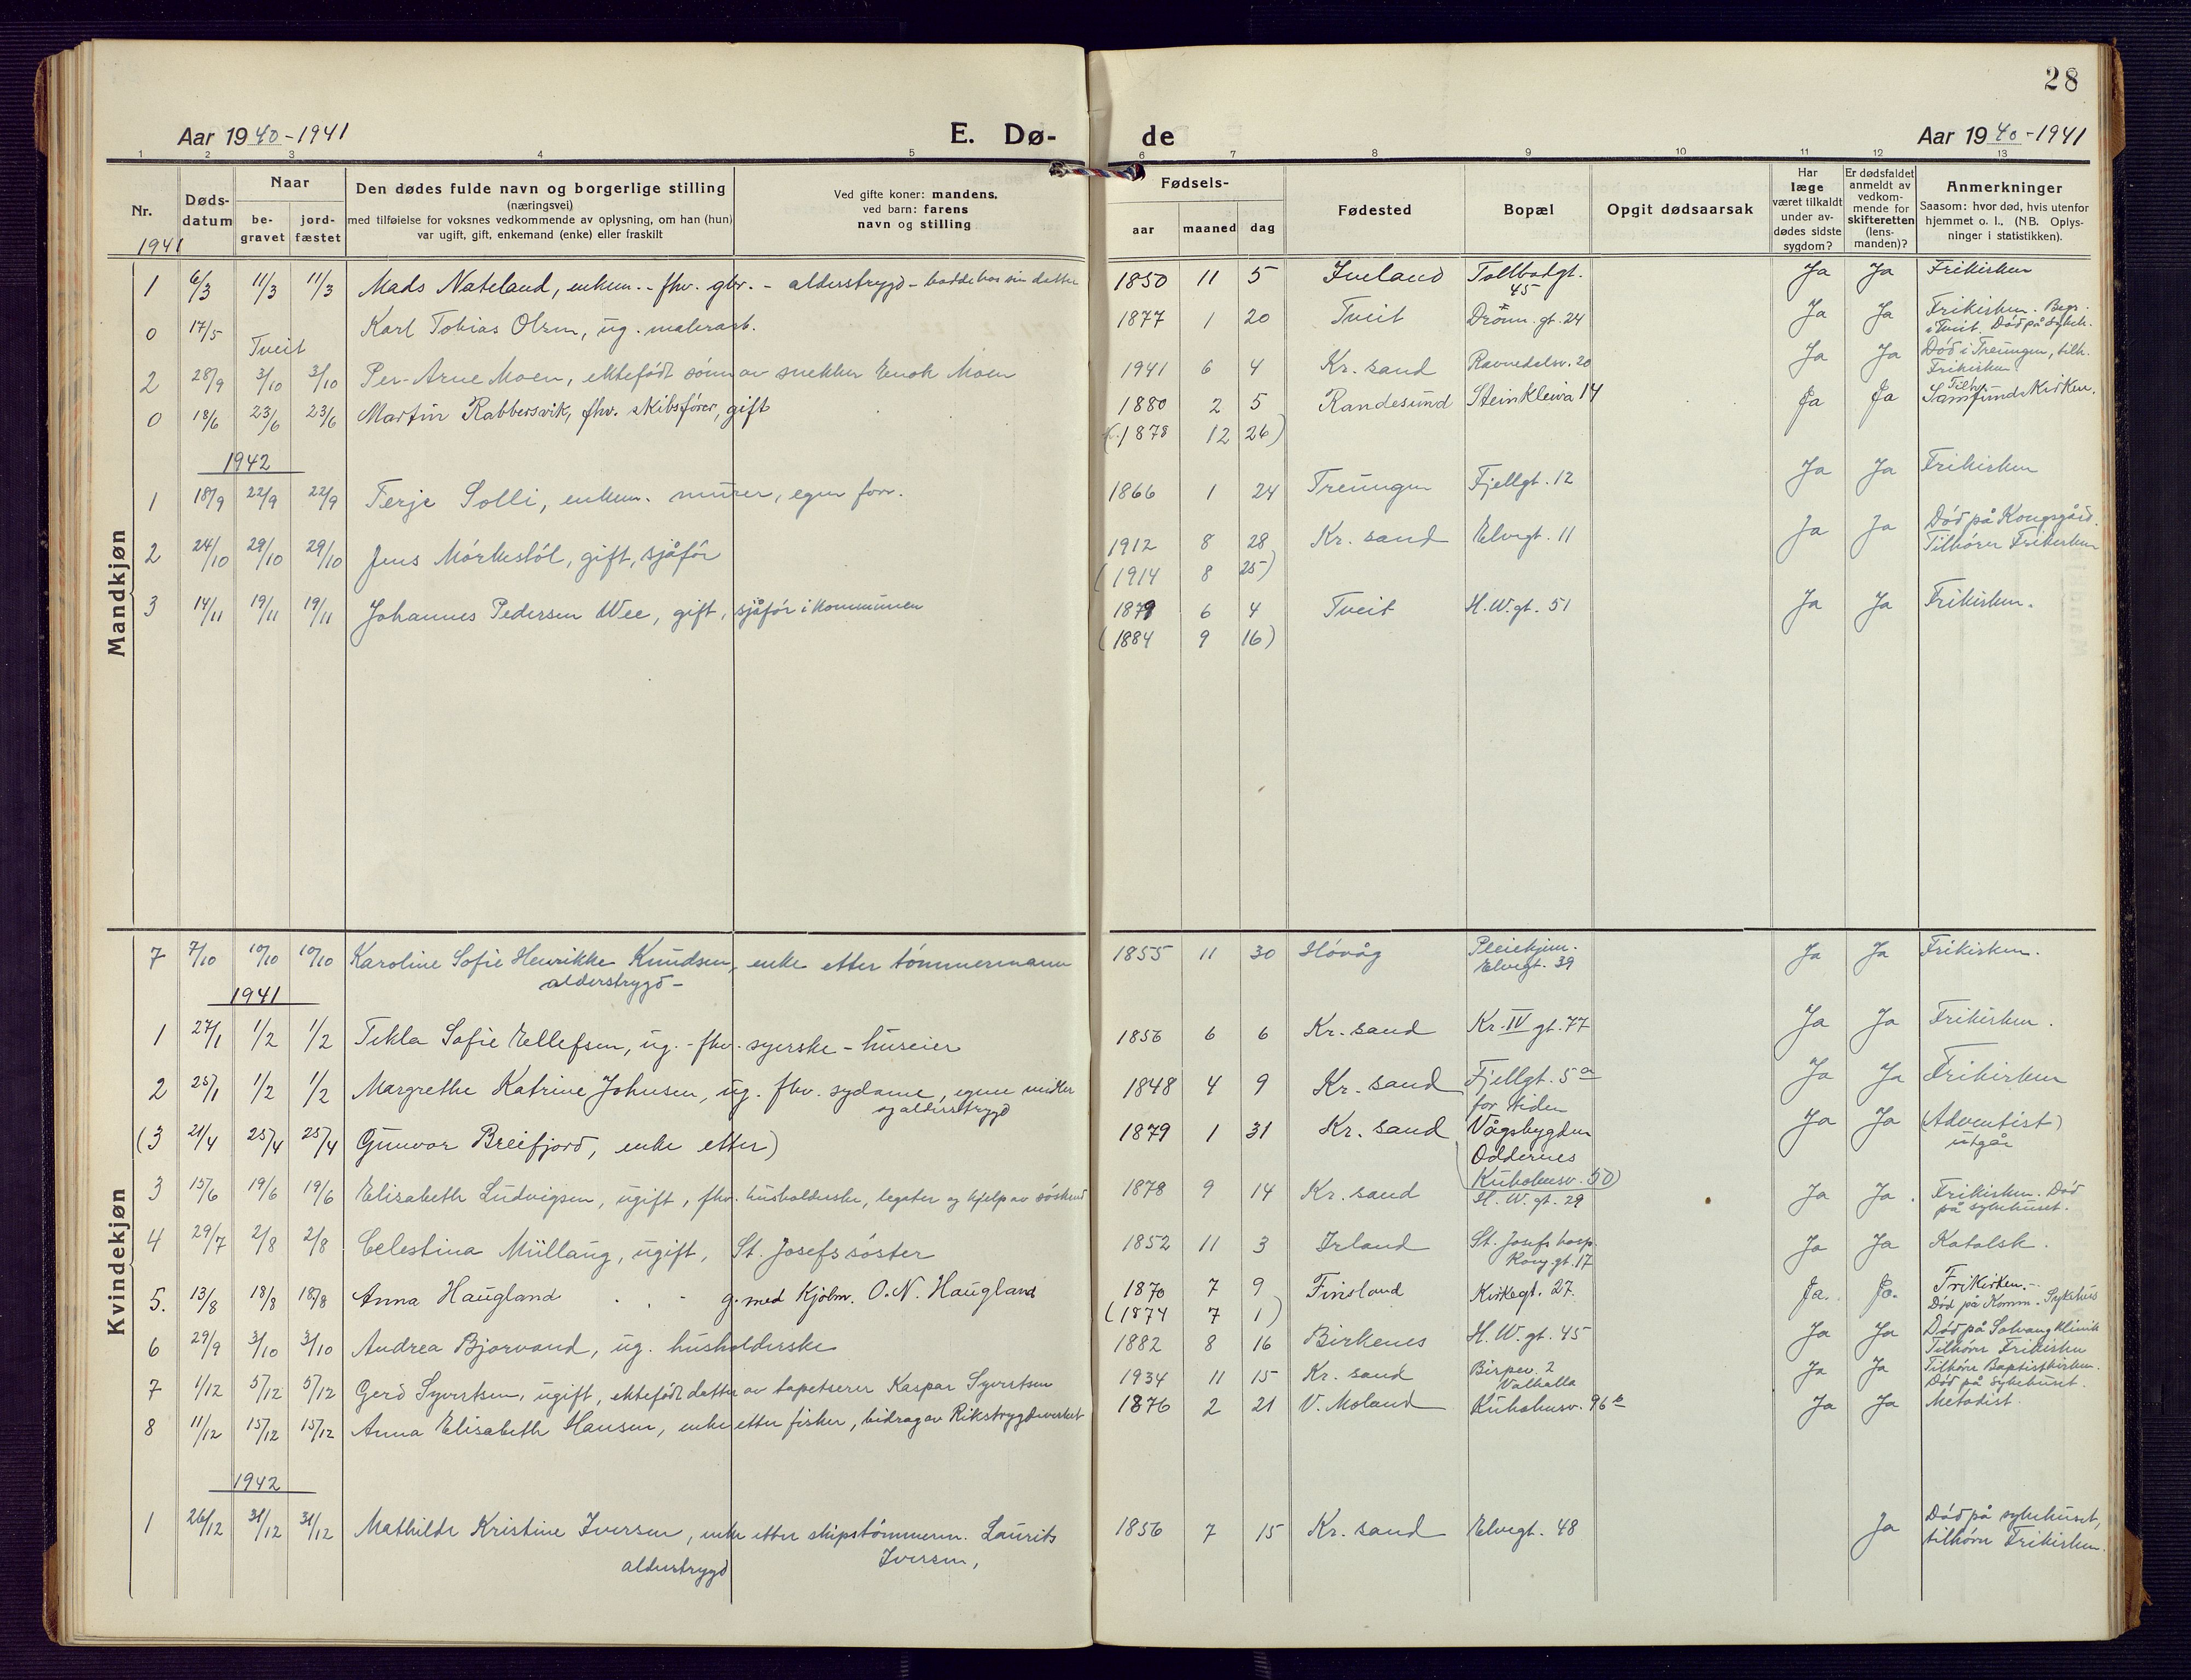 28
Aar 1940-1941 E. Dø- de Aar 1940-1941
1 2 3 4 5 6 7 8 9 10 11 12 13
Nr. Døds-datum Naar be-gravet jord-fæstet Den dødes fulde navn og borgerlige stilling (næringsvei) med tilføielse for voksnes vedkommende av oplysning, om han (hun) var ugift, gift, enkemand (enke) eller fraskilt Ved gifte koner: mandens, ved barn: farens navn og stilling Fødsels- aar maaned dag Fødested Bopæl Opgit dødsaarsak Har læge været tilkaldt under av-dødes sidste sygdom? Er dødsfaldet anmeldt av vedkom-mende for skifteretten (lens-manden)? Anmerkninger Saasom: hvor død, hvis utenfor hjemmet o. l., (NB. Oplys-ninger i statistikken).
Mandkjøn
1941
1 6/3 11/3 11/3 Mads Nateland, enkem. - fhv. gbr. - alderstrygd - bodde hos sin datter 1850 11 5 Iveland Tollbodgt. 45 Ja Ja Frikirken
0 17/5 Tveit Karl Tobias Olsen, ug. malerarb. 1877 1 20 Tveit Dronn. gt. 24 Ja Ja Frikirken. Begr. i Tveit. Død på sykeh.
2 28/9 3/10 3/10 Per-Arne Moen, ektefødt sønn av snekker Enok Moen 1941 6 4 Kr. sand Ravnedalsv. 20 Ja Ja Død i Treungen, tilh. Frikirken
0 18/6 23/6 23/6 Martin Rabbersvik, fhv. skibsfører, gift 1880 2 5 Randesund Steinkleiva 14 Ja Ja Tilh. Samfundskirken.
(1878 12 26)
1942
1 18/9 22/9 22/9 Terje Solli, enkem. murer, egen forr. 1866 1 24 Treungen Fjellgt. 12 Ja Ja Frikirken
2 24/10 29/10 29/10 Jens Mørkestøl, gift, sjåfør 1912 8 28 Kr. sand Elvegt. 11 Ja Ja Død på Kongsgård. Tilhører Frikirken
(1914 8 25)
3 14/11 19/11 19/11 Johannes Pedersen Wee, gift, sjåfør i kommunen 1879 6 4 Tveit H.W.gt. 51 Ja Ja Frikirken.
(1884 9 16)
Kvindekjøn
7 7/10 10/10 10/10 Karoline Sofie Henrikke Knudsen, enke etter tømmermann alderstrygd- 1855 11 30 Høvåg Pleiehjem. Elvegt. 39 Ja Ja Frikirken.
1941
1 27/1 1/2 1/2 Tekla Sofie Ellefsen, ug. - fhv. syerske - huseier 1856 6 6 Kr. sand Kr. IV gt. 77 Ja Ja Frikirken.
2 25/1 1/2 1/2 Margrethe Katrine Johnsen, ug. fhv. sydame, egne midler og alderstrygd 1848 4 9 Kr. sand Fjellgt. 5a Ja Ja Frikirken
(3 21/4 25/4 25/4 Gunvor Breifjord, enke etter) 1879 1 31 Kr. sand for tiden Vågsbygden Oddernes Kuholmsv. 50) Ja Ja (Adventist) utgår
3 15/6 19/6 19/6 Elisabeth Ludvigsen, ugift, fhv. husholderske, legater og hjelp av søskend 1878 9 14 Kr. sand H. W. gt. 29 Ja Ja. Frikirken. Død på sykehuset.
4 29/7 2/8 2/8 Celestina Müllang, ugift, St. Josefssøster 1852 11 3 Irland St. Josefs hosp. Kong. gt. 17 Ja Ja Katolsk.
5. 13/8 18/8 18/8 Anna Haugland . . - g. med Kjølm. O. N. Haugland 1870 7 9 Finsland Kirkegt. 27. Ja. Ja. Frikirken.- Død på Komm. Sykehus
(1874 7 1)
6 29/9 3/10 3/10 Andrea Bjorvand, ug. husholderske 1882 8 16 Birkenes H. W. gt. 45 Ja Ja Død på Solvang klinik Tilhører Frikirken
7 1/12 5/12 5/12 Gerd Syvertsen, ugift, ektefødt datter av tapetserer Kaspar Syvertsen 1934 11 15 Kr. sand 2 Valhalla Ja Ja Tilhører Baptistkirken. Død på sykehuset.
8 11/12 15/12 15/12 Anna Elisabeth Hansen, enke etter fisker, bidrag av Rikstrygdeverket 1876 2 21 V. Moland Kuholmsv. 96 b Ja Ja Metodist.
1942
1 26/12 31/12 31/12 Mathilde Kristine Iversen, enke etter skipstømmerm. Laurits Iversen, alderstrygd 1856 7 15 Kr. sand Elvegt. 48 Ja Død på sykehuset, tilhører Frikirken.